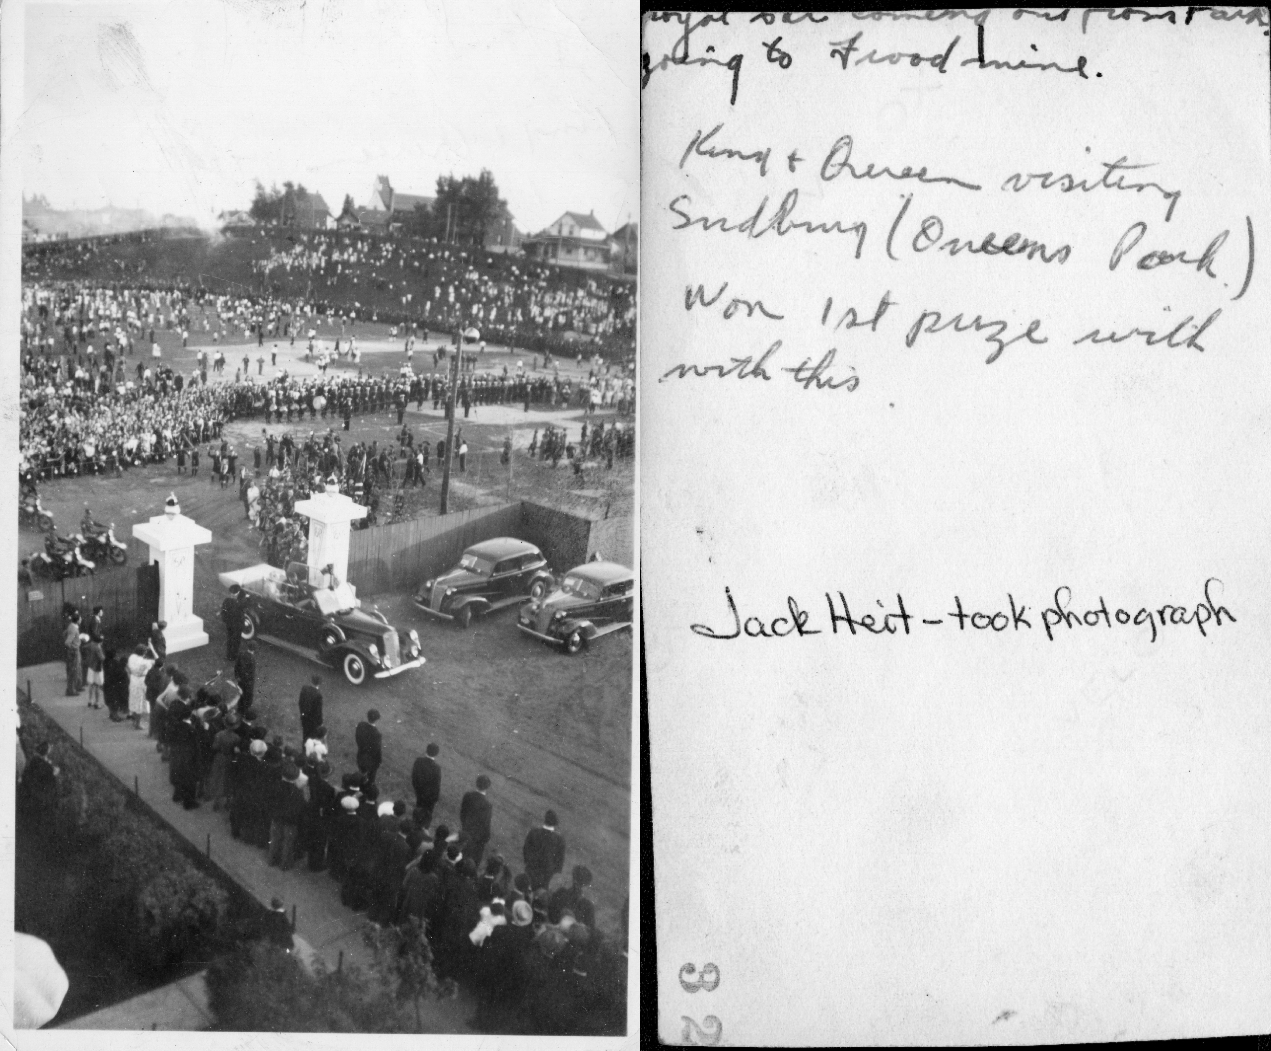 royal car coming out from Park.
going to Frood mine.
King + Queen visiting
Sudbury (Queens Park)
Won 1st prize with
with this
Jack Heit - took photograph
32